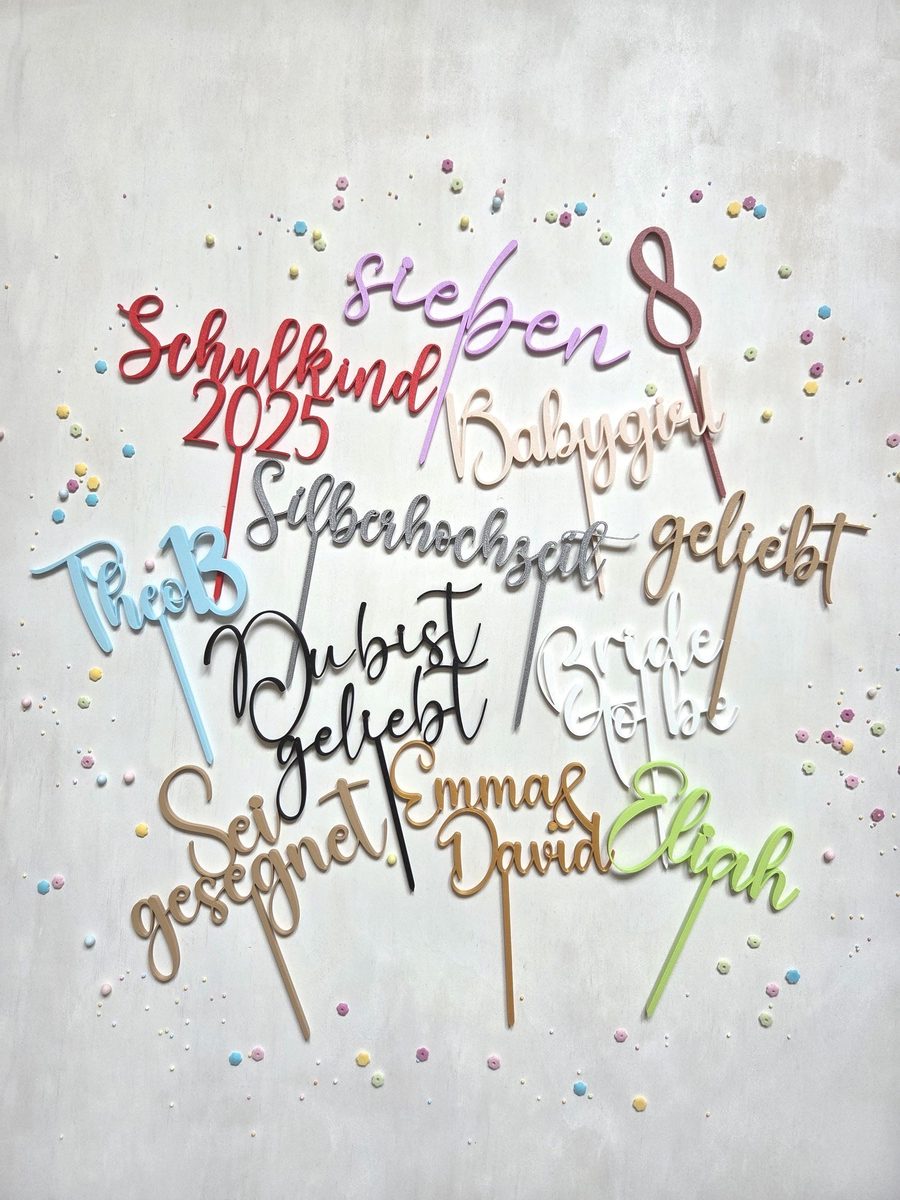 sieben
8
Schulkind
2025
Babygirl
Silberhochzeit
geliebt
Theo 8
Du bist
geliebt
Bride
to be
Sei
gesegnet
Emma&
David
Eliah